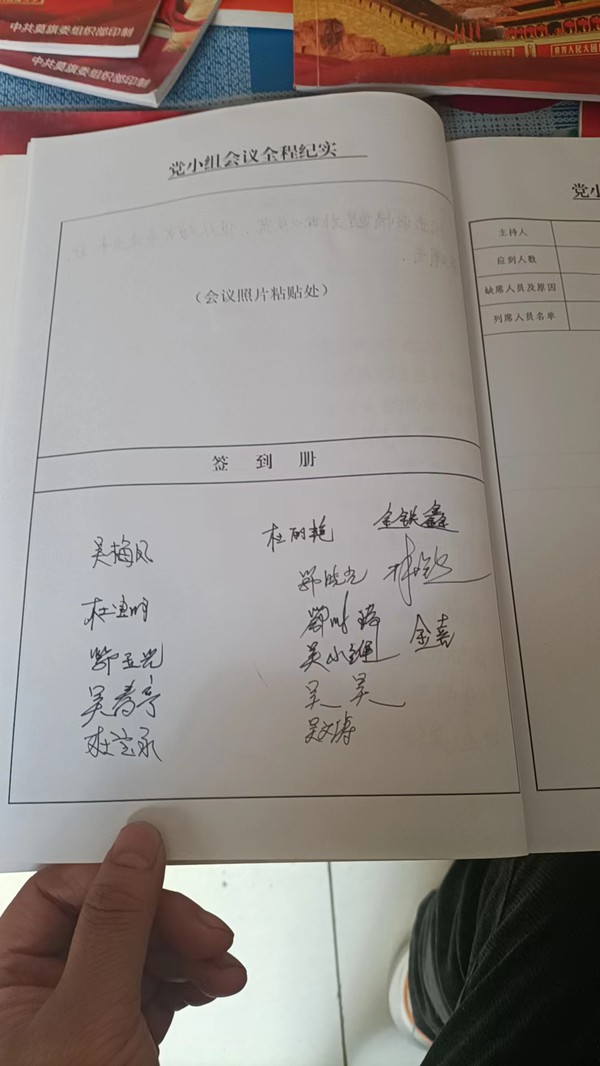 中共莫旗委组织部印制
中共莫旗委组织部印制
世界人民大团
党小组会议全程纪实
(会议照片粘贴处)
签到册
吴梅凤
杜丽艳
金铁鑫
鄂晓光
杜
鄂
鄂玉光
吴小
金喜
吴寿亭
吴昊
杜宝永
吴文涛
党小
主持人
应到人数
缺席人员及原因
列席人员名单